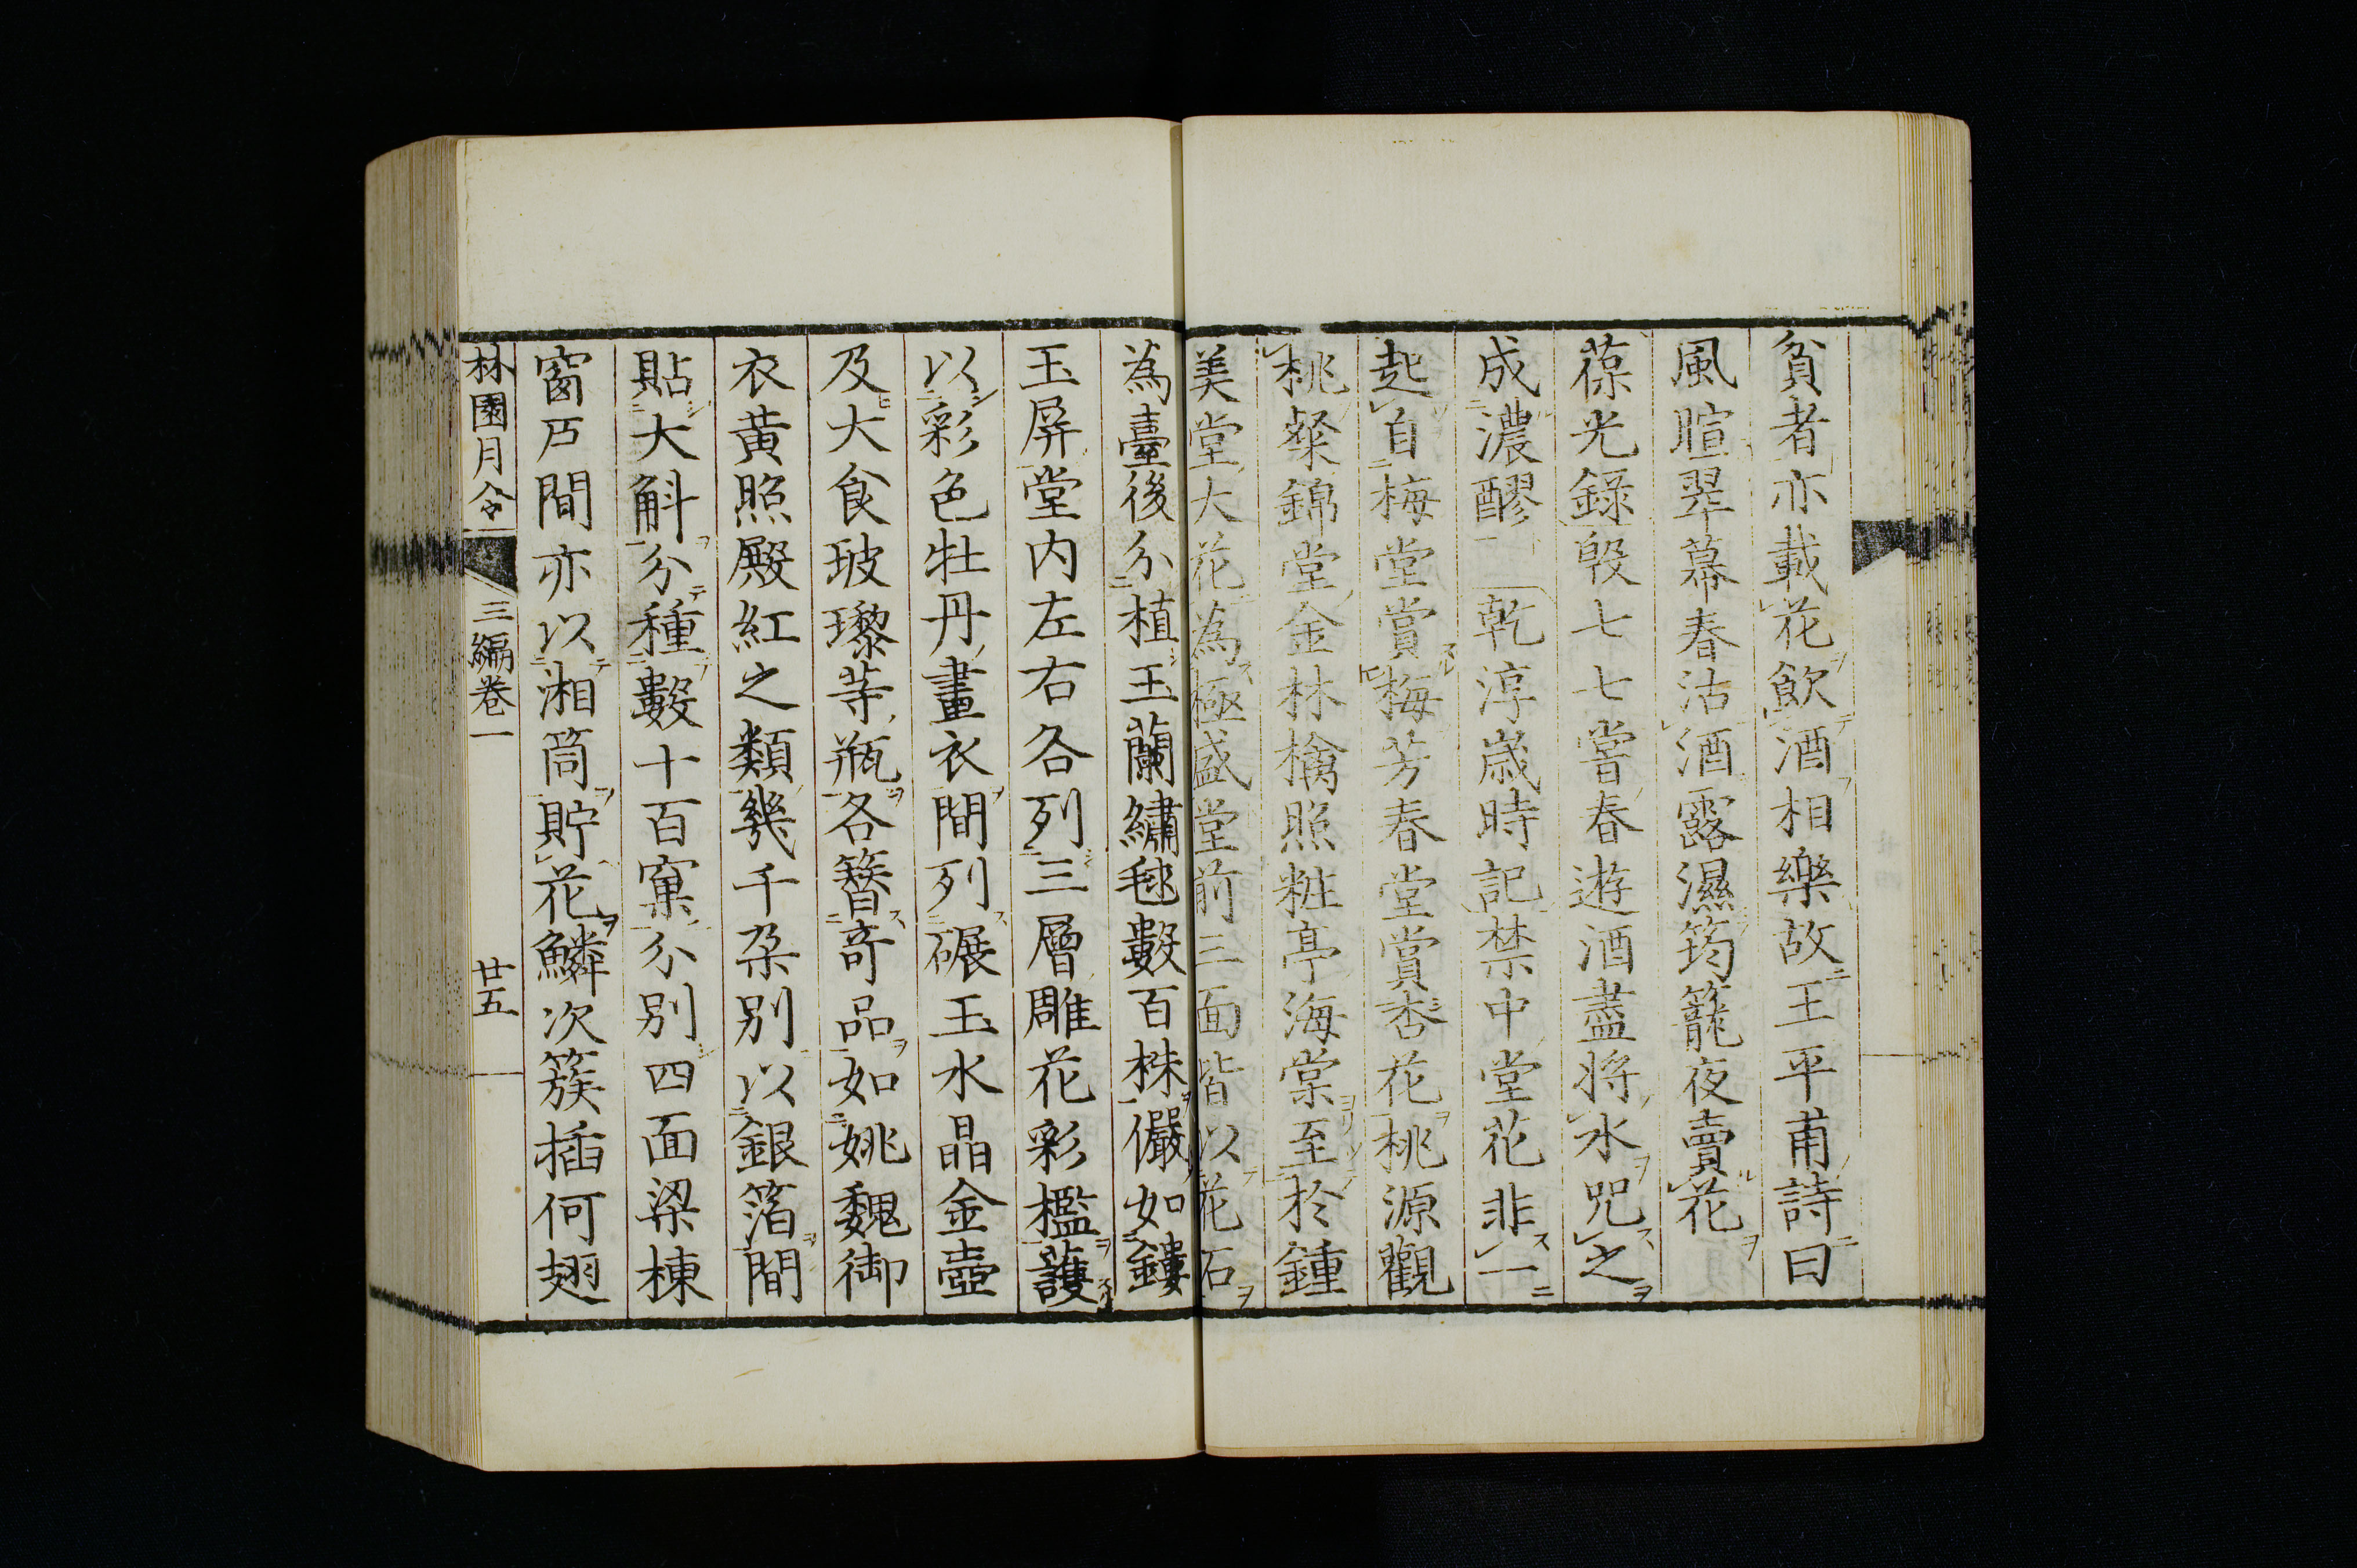 貧者亦載花飲酒相樂故王平甫詩曰
風暄翠幕春沽酒露濕筠籠夜賣花
葆光錄殷七七嘗春遊酒盡將水咒之
成濃醪 乾淳歲時記禁中堂花非一
起自梅堂賞梅芳春堂賞杏花桃源觀
桃粲錦堂金林檎照粧亭海棠至於鍾
美堂大花為極盛堂前三面皆以花石
為臺後分植玉蘭繡毬數百株儼如鏤
玉屏堂内左右各列三層雕花彩檻護
以彩色牡丹畫衣間列碾玉水晶金壺
及大食玻瓈等瓶各簪奇品如姚魏御
衣黄照殿紅之類幾千朶別以銀箔間
貼大斛分種數十百窠分別四面梁棟
窗戸間亦以湘筒貯花鱗次簇插何翅
林園月令 三編卷一 廿五